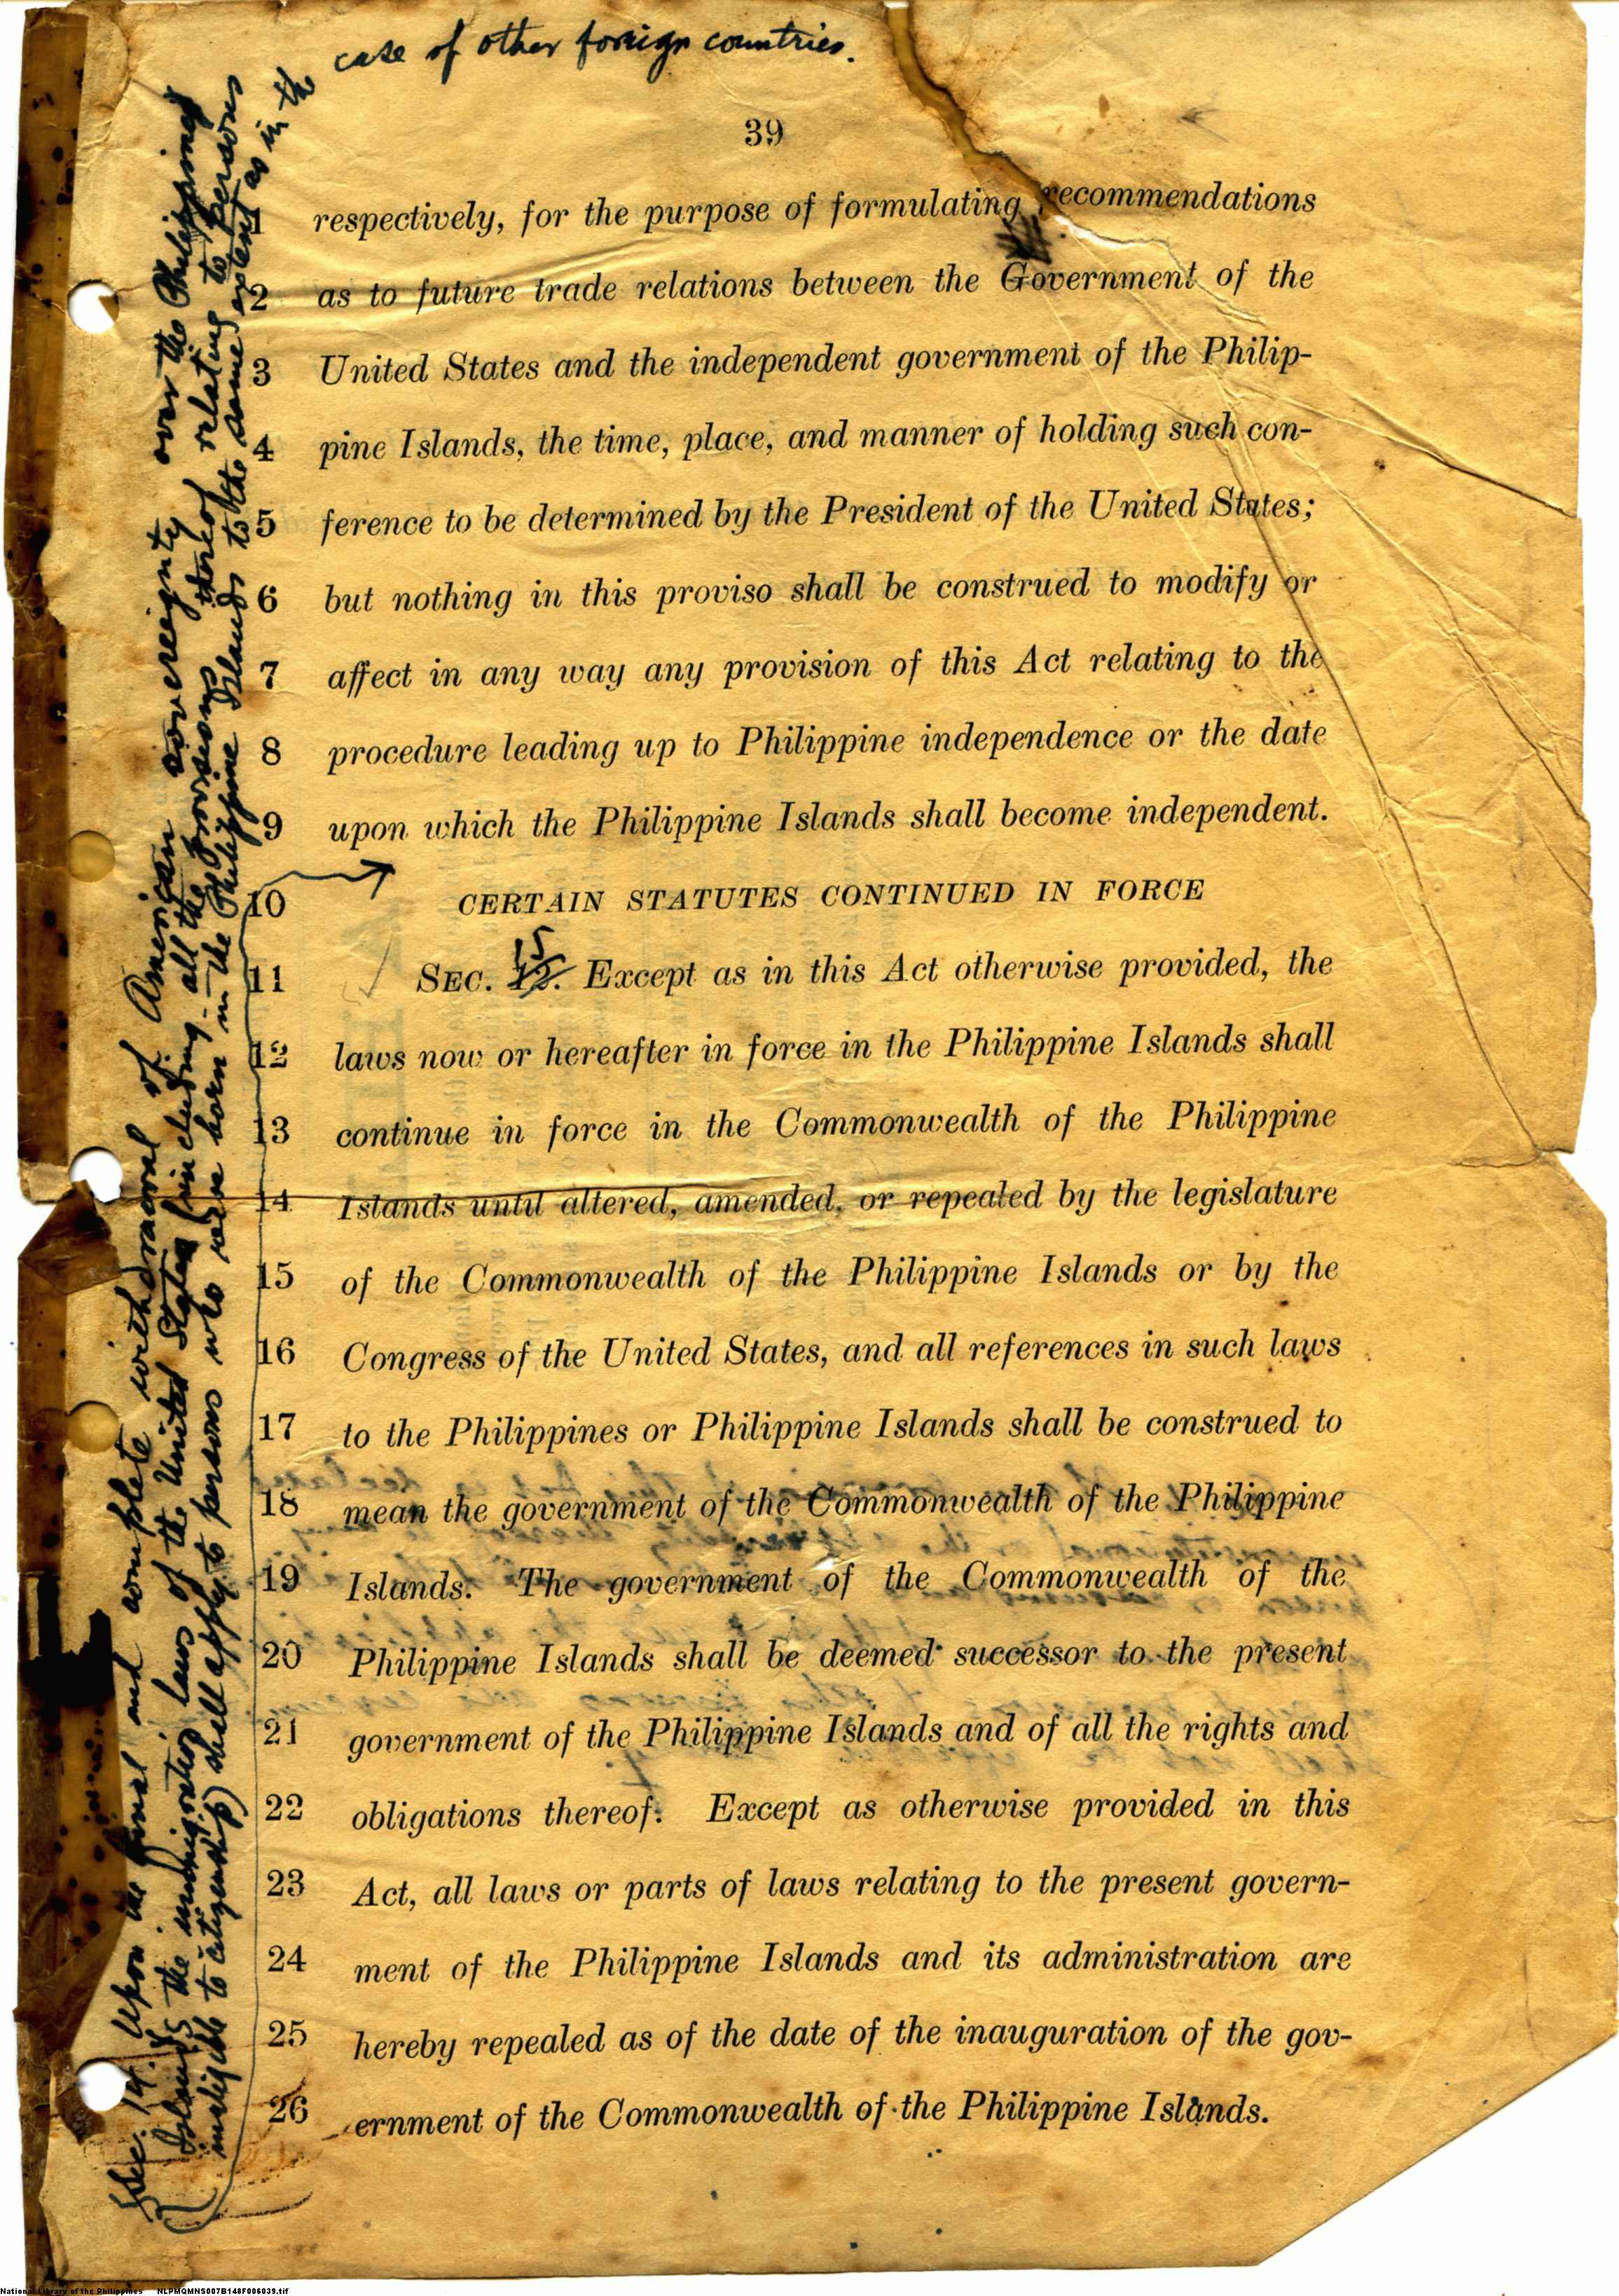 case of other foreign countries.
39
1 respectively, for the purpose of formulating recommendations
2 as to future trade relations between the Government of the
3 United States and the independent government of the Philip-
4 pine Islands, the time, place, and manner of holding such con-
5 ference to be determined by the President of the United States;
6 but nothing in this proviso shall be construed to modify or
7 affect in any way any provision of this Act relating to the
8 procedure leading up to Philippine independence or the date
9 upon which the Philippine Islands shall become independent.
10 CERTAIN STATUTES CONTINUED IN FORCE
11 SEC. 12. 15 Except as in this Act otherwise provided, the
12 laws now or hereafter in force in the Philippine Islands shall
13 continue in force in the Commonwealth of the Philippine
14 Islands until altered, amended, or repealed by the legislature
15 of the Commonwealth of the Philippine Islands or by the
16 Congress of the United States, and all references in such laws
17 to the Philippines or Philippine Islands shall be construed to
18 mean the government of the Commonwealth of the Philippine
19 Islands. The government of the Commonwealth of the
20 Philippine Islands shall be deemed successor to the present
21 government of the Philippine Islands and of all the rights and
22 obligations thereof. Except as otherwise provided in this
23 Act, all laws or parts of laws relating to the present govern-
24 ment of the Philippine Islands and its administration are
25 hereby repealed as of the date of the inauguration of the gov-
26 ernment of the Commonwealth of the Philippine Islands.
Sec. 14. Upon the final and complete withdrawal of American sovereignty over the Philippine
Islands the immigration laws of the United States (including all the provisions thereof relating to persons
ineligible to citizenship) shall apply to persons who were born in the Philippine Islands to the same extent as in the
National Library of the Philippines NLPMQMNS007B148F006039.tif